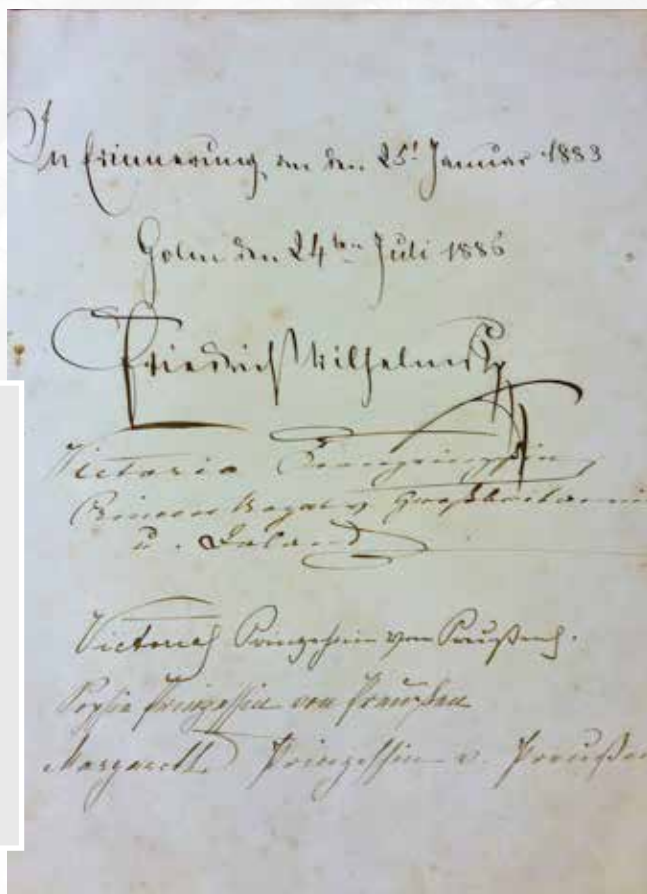 In Erinnerung an den 25t Januar 1883
Golm den 24ten Juli 1886
Friedrich Wilhelm Kp
Victoria Kronprinzessin
Princess Royal v Großbritannie
u. Irland
Victoria Prinzessin von Preußen.
Sophie Prinzessin von Preußen
Margareth Prinzessin v. Preußen